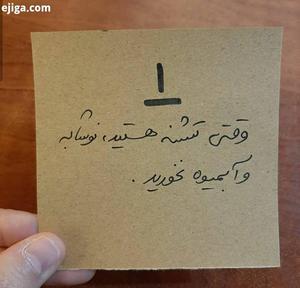 ejiga.com
۱
وقتی تشنه هستید، نوشابه
و آبمیوه نخورید.